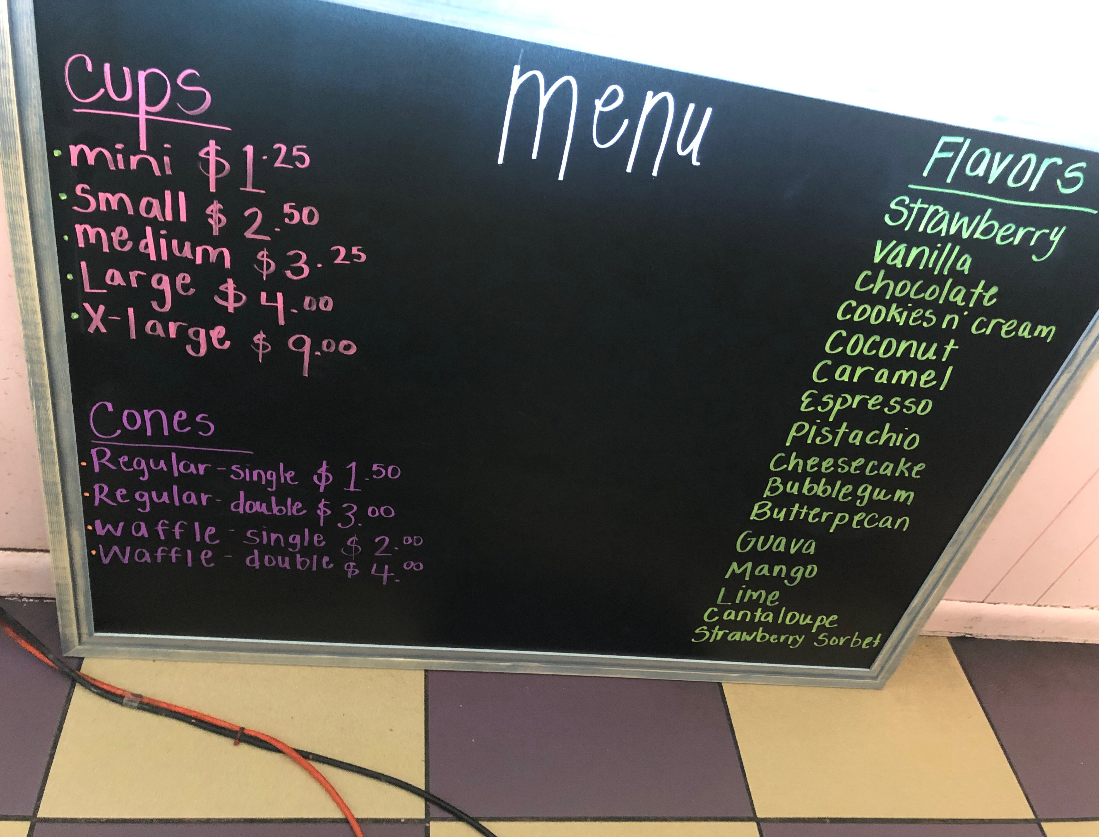 Menu
Cups
mini $1.25
Small $2.50
medium $3.25
Large $4.00
X-large $9.00
Cones
Regular-single $1.50
Regular-double $3.00
Waffle-single $2.00
Waffle-double $4.00
Flavors
Strawberry
Vanilla
Chocolate
Cookies n' cream
Coconut
Caramel
Espresso
Pistachio
Cheesecake
Bubblegum
Butterpecan
Guava
Mango
Lime
Cantaloupe
Strawberry Sorbet